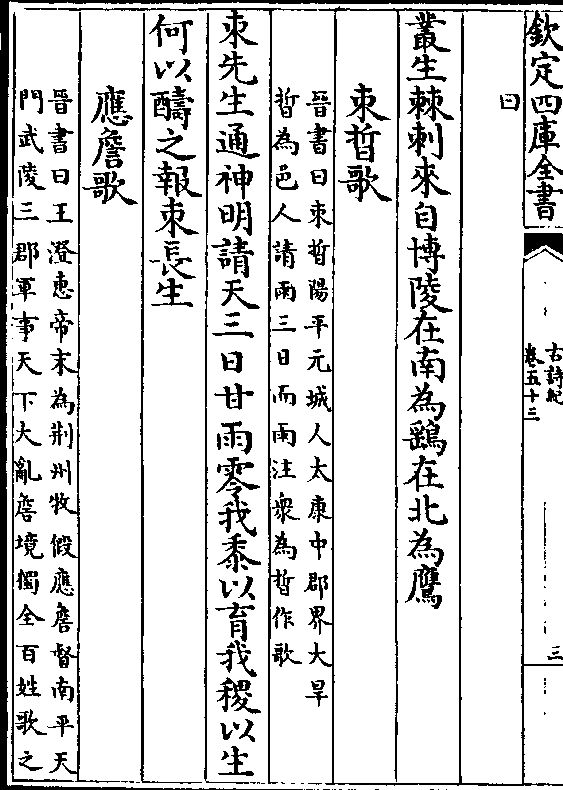 欽定四庫全書
古詩紀
卷五十三
三
曰
叢生棘刺來自博陵在南為鷂在北為鷹
束晳歌
晉書曰束晳陽平元城人太康中郡界大旱
晳為邑人請雨三日而雨注衆為晳作歌
束先生通神明請天三日甘雨零我黍以育我稷以生
何以醻之報束長生
應詹歌
晉書曰王澄惠帝末為荆州牧假應詹督南平天
門武陵三郡軍事天下大亂詹境獨全百姓歌之